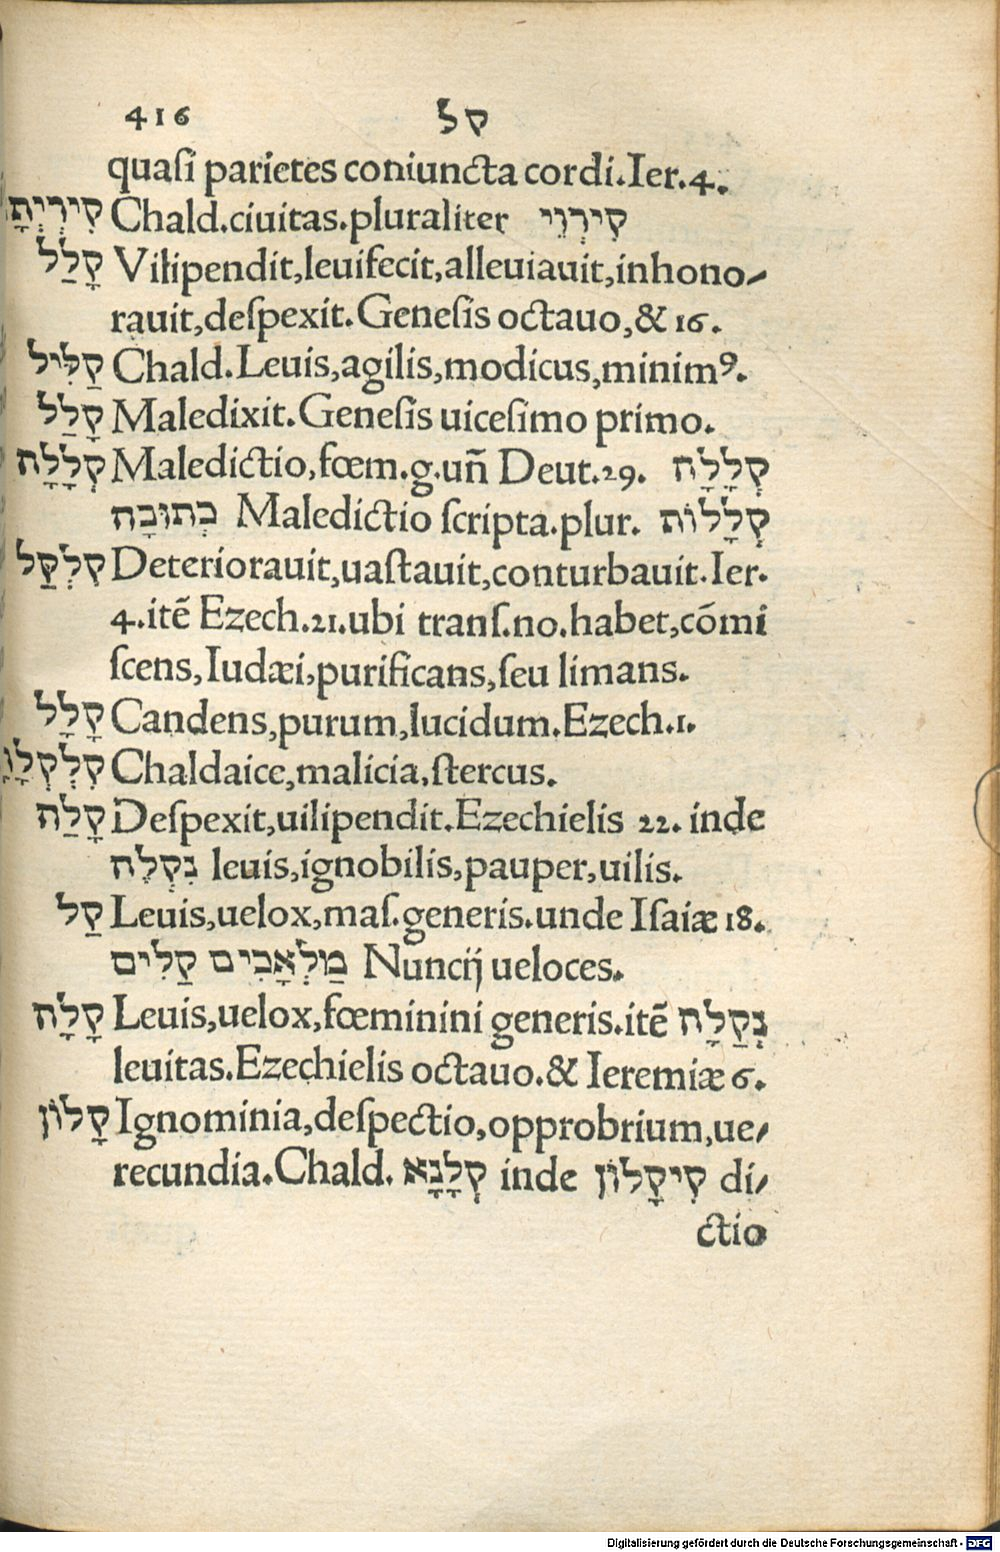 416 קל
quaſi parietes coniuncta cordi.Ier.4.
קִירְיְתָ Chald.ciuitas.pluraliter קִירְוֵי
קָלַל Vilipendit,leuifecit,alleuiauit,inhono-
rauit,deſpexit.Geneſis octauo,& 16.
קַלִּיל Chald.Leuis,agilis,modicus,minimꝰ.
קָלַל Maledixit.Geneſis uiceſimo primo.
קְלָלָה Maledictio,fœm.g.uñ Deut.29. קְלָלָה
כְתוּבָה Maledictio ſcripta.plur. קְלָלוֹת
קִלְקַל Deteriorauit,uaſtauit,conturbauit.Ier.
4.itē Ezech.21.ubi tranſ.no.habet,cōmi
ſcens,Iudæi,purificans,ſeu limans.
קָלָל Candens,purum,lucidum.Ezech.1.
Chaldaice,malicia,ſtercus.
קָלַה Deſpexit,uilipendit.Ezechielis 22. inde
נִקְלֶה leuis,ignobilis,pauper,uilis.
קַל Leuis,uelox,maſ.generis.unde Iſaiæ 18.
מַלְאָכִים קַלִּים Nuncij ueloces.
קַלָּה Leuis,uelox,fœminini generis.itē נְקַלָּה
leuitas.Ezechielis octauo.& Ieremiæ 6.
קָלוֹן Ignominia,deſpectio,opprobrium,ue-
recundia.Chald. קְלָנָא inde קִיקָלוֹן di-
ctio
Digitalisierung gefördert durch die Deutsche Forschungsgemeinschaft - DFG